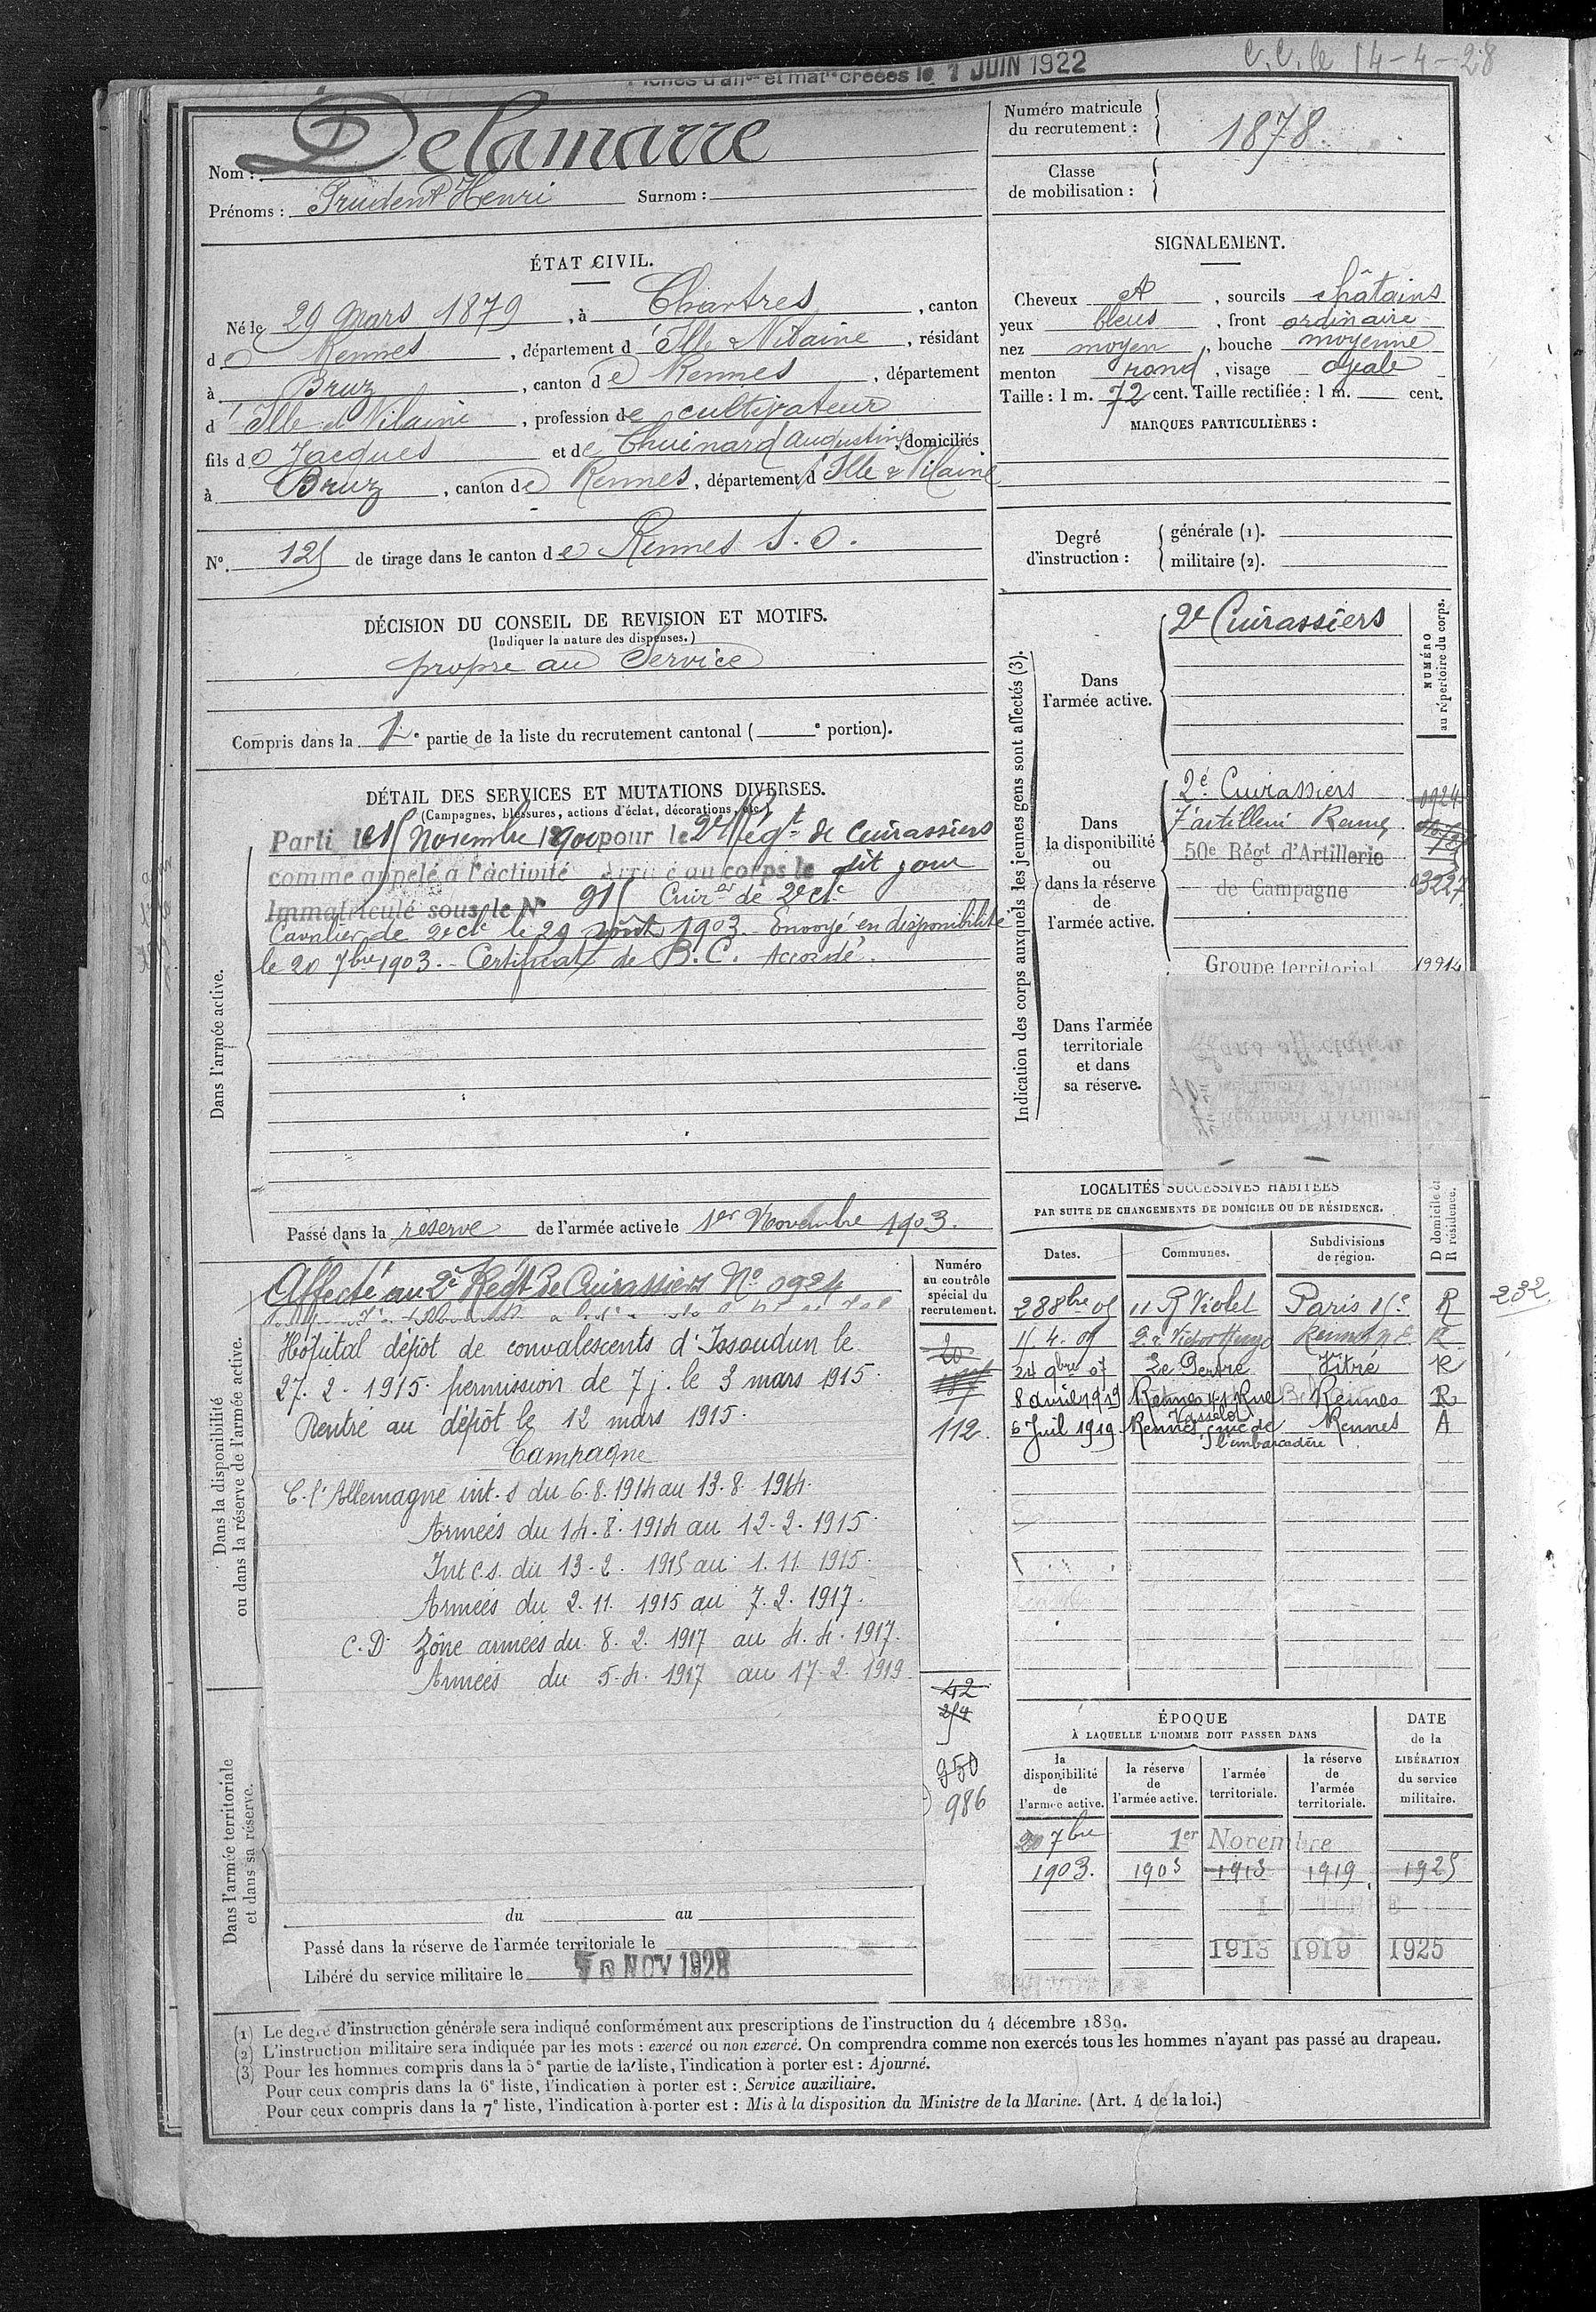 Fiches d'aff<sup>on</sup> et mat<sup>le</sup> créées le 1 JUIN 1922
C.C. le 14-4-28
Nom : Delamarre
Prénoms : Prudent Henri Surnom :
Numéro matricule du recrutement : 1878
Classe de mobilisation :
ÉTAT CIVIL.
Né le 29 Mars 1879, à Chartres, canton
de Rennes, département d'Ille & Vilaine, résidant
à Bruz, canton de Rennes, département
d'Ille et Vilaine, profession de cultivateur
fils de Jacques et de Thuinard Augustine, domiciliés
à Bruz, canton de Rennes, département d'Ille & Vilaine
N° 125 de tirage dans le canton de Rennes S.O.
SIGNALEMENT.
Cheveux et, sourcils châtains
yeux bleus, front ordinaire
nez moyen, bouche moyenne
menton rond, visage ovale
Taille : 1 m. 72 cent. Taille rectifiée : 1 m. cent.
MARQUES PARTICULIÈRES :
Degré d'instruction : générale (1).
militaire (2).
DÉCISION DU CONSEIL DE REVISION ET MOTIFS.
(Indiquer la nature des dispenses.)
propre au Service
Compris dans la 1e partie de la liste du recrutement cantonal ( e portion).
DÉTAIL DES SERVICES ET MUTATIONS DIVERSES.
(Campagnes, blessures, actions d'éclat, décorations, etc.)
Dans l'armée active.
Parti le 15 Novembre 1900 pour le 2e Régt de Cuirassiers
comme appelé à l'activité Arrivé au corps le dit jour
Immatriculé sous le N° 915 Cuirer de 2e cl.
Cavalier de 2e cl. le 29 août 1903. Envoyé en disponibilité
le 20 7bre 1903. Certificat de B.C. Accordé.
Passé dans la réserve de l'armée active le 1er Novembre 1903.
Indication des corps auxquels les jeunes gens sont affectés (3).
NUMÉRO au répertoire du corps.
Dans l'armée active.
2e Cuirassiers
Dans la disponibilité ou dans la réserve de l'armée active.
2e Cuirassiers 0924
7e artillerie Rennes
50e Régt d'Artillerie
de Campagne 03227
Groupe territorial 19914
Dans l'armée territoriale et dans sa réserve.
LOCALITÉS SUCCESSIVES HABITÉES
PAR SUITE DE CHANGEMENTS DE DOMICILE OU DE RÉSIDENCE.
Dates. Communes. Subdivisions de région. D domicile R résidence.
28 8bre 05 11 R Violet Paris 15e R 232
15. 4. 07 2 r. Victor Hugo Rennes R
24 9bre 07 Le Pertre Vitré R
8 avril 1919 Rennes 41 Rue Vasselot Rennes R
6 Juil 1919 Rennes, rue de l'embarcadère Rennes A
Dans la disponibilité ou dans la réserve de l'armée active.
Numéro au contrôle spécial du recrutement.
Affecté au 2e Régt de Cuirassiers N° 0924
Hôpital dépôt de convalescents d'Issoudun le
27. 2. 1915. permission de 7 j. le 3 mars 1915.
Rentré au dépôt le 12 mars 1915.
Campagne
C. l'Allemagne int. s du 6.8.1914 au 13.8.1914.
Armées du 14.8.1914 au 12.2.1915.
Int c.s. du 13-2. 1915 au 1.11 1915.
Armées du 2.11. 1915 au 7.2.1917.
C.D. Zône armées du 8.2.1917 au 4.4.1917.
Armées du 5.4.1917 au 17.2.1919.
20
112.
42
254
950
986
Dans l'armée territoriale et dans sa réserve.
du au
Passé dans la réserve de l'armée territoriale le
Libéré du service militaire le 10 NOV 1928
ÉPOQUE
À LAQUELLE L'HOMME DOIT PASSER DANS
la disponibilité de l'armée active. la réserve de l'armée active. l'armée territoriale. la réserve de l'armée territoriale.
DATE de la LIBÉRATION du service militaire.
20 7bre 1er Novembre
1903. 1903 1913 1919 1925
1913 1919 1925
(1) Le degré d'instruction générale sera indiqué conformément aux prescriptions de l'instruction du 4 décembre 1889.
(2) L'instruction militaire sera indiquée par les mots : exercé ou non exercé. On comprendra comme non exercés tous les hommes n'ayant pas passé au drapeau.
(3) Pour les hommes compris dans la 5e partie de la liste, l'indication à porter est : Ajourné.
Pour ceux compris dans la 6e liste, l'indication à porter est : Service auxiliaire.
Pour ceux compris dans la 7e liste, l'indication à porter est : Mis à la disposition du Ministre de la Marine. (Art. 4 de la loi.)